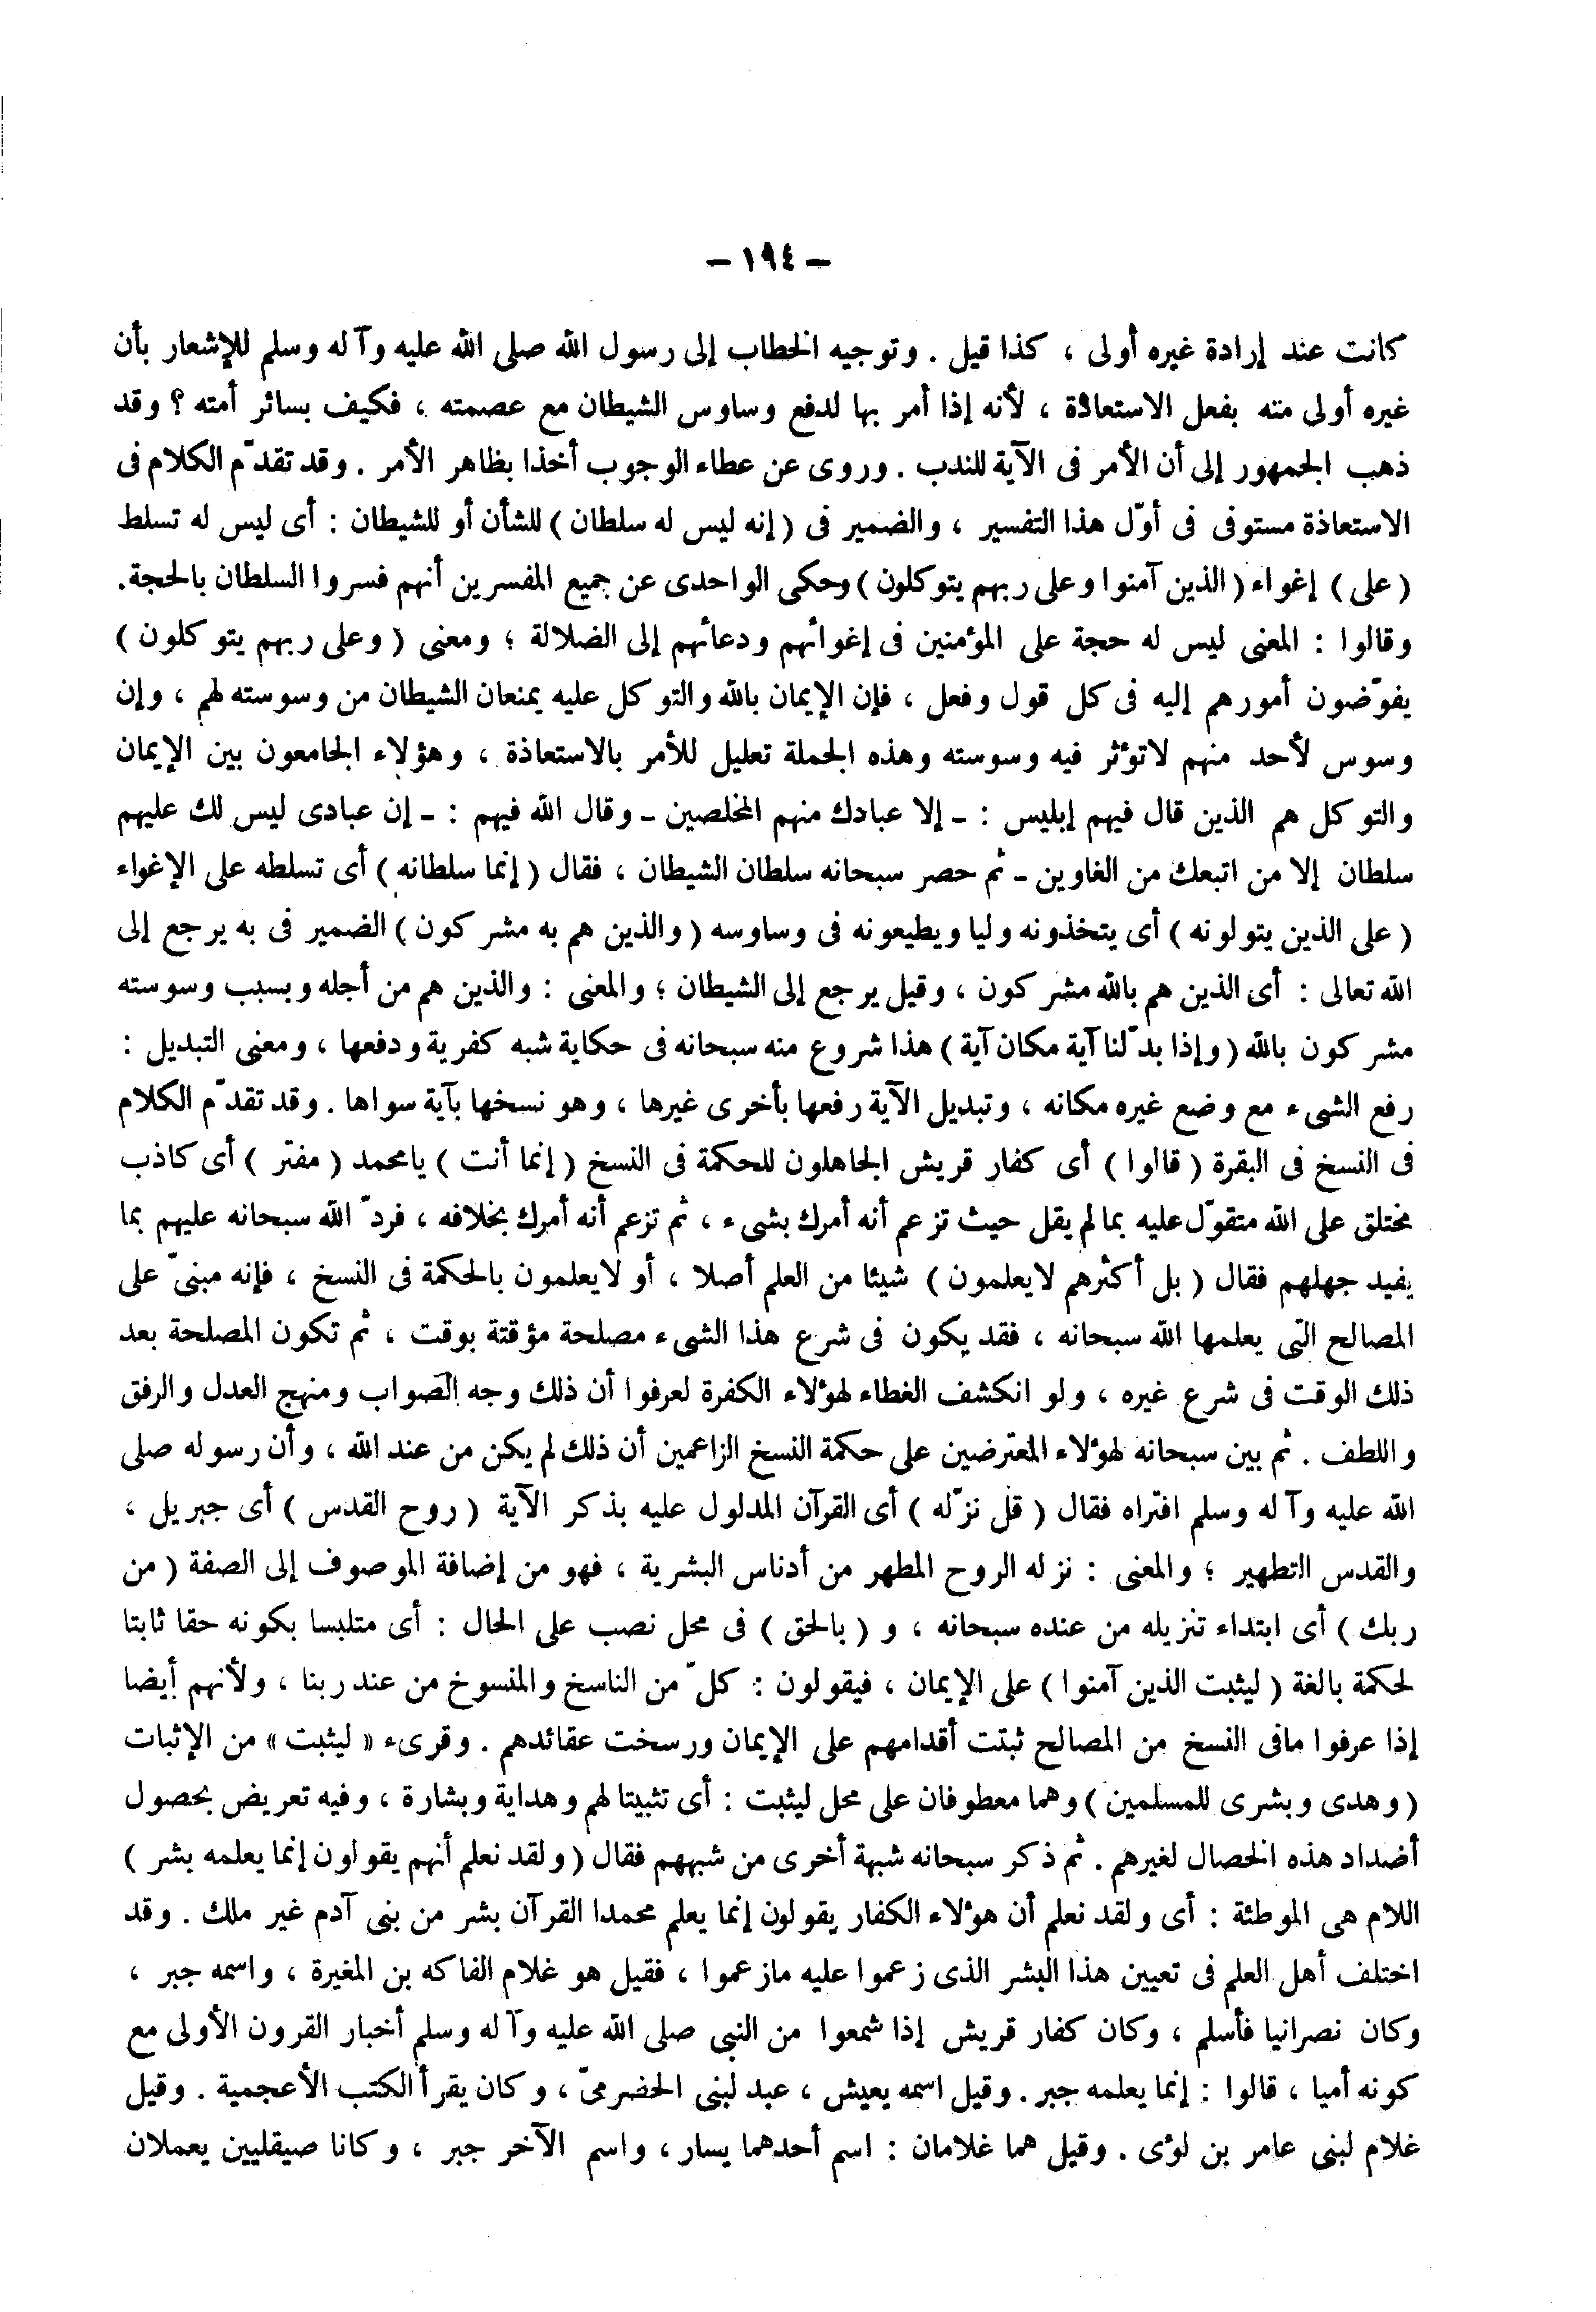 — ١٩٤ —
كانت عند إرادة غيره أولى ، كذا قيل . وتوجيه الخطاب إلى رسول الله صلى الله عليه وآله وسلم للإشعار بأن
غيره أولى منه بفعل الاستعاذة ، لأنه إذا أمر بها لدفع وساوس الشيطان مع عصمته ، فكيف بسائر أمته ؟ وقد
ذهب الجمهور إلى أن الأمر فى الآية للندب . وروى عن عطاء الوجوب أخذا بظاهر الأمر . وقد تقدّم الكلام فى
الاستعاذة مستوفى فى أوّل هذا التفسير ، والضمير فى ( إنه ليس له سلطان ) للشأن أو للشيطان : أى ليس له تسلط
( على ) إغواء ( الذين آمنوا وعلى ربهم يتوكلون ) وحكى الواحدى عن جميع المفسرين أنهم فسروا السلطان بالحجة.
وقالوا : المعنى ليس له حجة على المؤمنين فى إغوائهم ودعائهم إلى الضلالة ؛ ومعنى ( وعلى ربهم يتوكلون )
يفوّضون أمورهم إليه فى كل قول وفعل ، فإن الإيمان بالله والتوكل عليه يمنعان الشيطان من وسوسته لهم ، وإن
وسوس لأحد منهم لاتؤثر فيه وسوسته وهذه الجملة تعليل للأمر بالاستعاذة ، وهؤلاء الجامعون بين الإيمان
والتوكل هم الذين قال فيهم إبليس : ـ إلا عبادك منهم المخلصين ـ وقال الله فيهم : ـ إن عبادى ليس لك عليهم
سلطان إلا من اتبعك من الغاوين ـ ثم حصر سبحانه سلطان الشيطان ، فقال ( إنما سلطانه ) أى تسلطه على الإغواء
( على الذين يتولونه ) أى يتخذونه وليا ويطيعونه فى وساوسه ( والذين هم به مشركون ) الضمير فى به يرجع إلى
الله تعالى : أى الذين هم بالله مشركون ، وقيل يرجع إلى الشيطان ؛ والمعنى : والذين هم من أجله وبسبب وسوسته
مشركون بالله ( وإذا بدّلنا آية مكان آية ) هذا شروع منه سبحانه فى حكاية شبه كفرية ودفعها ، ومعنى التبديل :
رفع الشىء مع وضع غيره مكانه ، وتبديل الآية رفعها بأخرى غيرها ، وهو نسخها بآية سواها . وقد تقدّم الكلام
فى النسخ فى البقرة ( قالوا ) أى كفار قريش الجاهلون للحكمة فى النسخ ( إنما أنت ) يامحمد ( مفتر ) أى كاذب
مختلق على الله متقوّل عليه بما لم يقل حيث تزعم أنه أمرك بشىء ، ثم تزعم أنه أمرك بخلافه ، فردّ الله سبحانه عليهم بما
يفيد جهلهم فقال ( بل أكثرهم لايعلمون ) شيئا من العلم أصلا ، أو لايعلمون بالحكمة فى النسخ ، فإنه مبنىّ على
المصالح التى يعلمها الله سبحانه ، فقد يكون فى شرع هذا الشىء مصلحة مؤقتة بوقت ، ثم تكون المصلحة بعد
ذلك الوقت فى شرع غيره ، ولو انكشف الغطاء لهؤلاء الكفرة لعرفوا أن ذلك وجه الصواب ومنهج العدل والرفق
واللطف . ثم بين سبحانه لهؤلاء المعترضين على حكمة النسخ الزاعمين أن ذلك لم يكن من عند الله ، وأن رسوله صلى
الله عليه وآله وسلم افتراه فقال ( قل نزّله ) أى القرآن المدلول عليه بذكر الآية ( روح القدس ) أى جبريل ،
والقدس التطهير ؛ والمعنى : نزله الروح المطهر من أدناس البشرية ، فهو من إضافة الموصوف إلى الصفة ( من
ربك ) أى ابتداء تنزيله من عنده سبحانه ، و ( بالحق ) فى محل نصب على الحال : أى متلبسا بكونه حقا ثابتا
لحكمة بالغة ( ليثبت الذين آمنوا ) على الإيمان ، فيقولون : كلّ من الناسخ والمنسوخ من عند ربنا ، ولأنهم أيضا
إذا عرفوا مافى النسخ من المصالح ثبتت أقدامهم على الإيمان ورسخت عقائدهم . وقرىء « ليثبت » من الإثبات
( وهدى وبشرى للمسلمين ) وهما معطوفان على محل ليثبت : أى تثبيتا لهم وهداية وبشارة ، وفيه تعريض بحصول
أضداد هذه الخصال لغيرهم . ثم ذكر سبحانه شبهة أخرى من شبههم فقال ( ولقد نعلم أنهم يقولون إنما يعلمه بشر )
اللام هى الموطئة : أى ولقد نعلم أن هؤلاء الكفار يقولون إنما يعلم محمدا القرآن بشر من بنى آدم غير ملك . وقد
اختلف أهل العلم فى تعيين هذا البشر الذى زعموا عليه مازعموا ، فقيل هو غلام الفاكه بن المغيرة ، واسمه جبر ،
وكان نصرانيا فأسلم ، وكان كفار قريش إذا سمعوا من النبى صلى الله عليه وآله وسلم أخبار القرون الأولى مع
كونه أميا ، قالوا : إنما يعلمه جبر . وقيل اسمه يعيش ، عبد لبنى الحضرمىّ ، وكان يقرأ الكتب الأعجمية . وقيل
غلام لبنى عامر بن لؤى . وقيل هما غلامان : اسم أحدهما يسار ، واسم الآخر جبر ، وكانا صيقليين يعملان